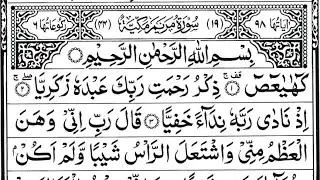 اٰیَاتُهَا ۹۸ (۱۹) سُوْرَةُ مَرْیَمَ مَكِّیَّةٌ (۴۴) رُكُوْعَاتُهَا ۶
بِسْمِ اللهِ الرَّحْمٰنِ الرَّحِیْمِ
كٓهٰیٰعٓصٓ ۚ۟ۖ۝۱ ذِكْرُ رَحْمَتِ رَبِّكَ عَبْدَهٗ زَكَرِیَّا ۝۲
اِذْ نَادٰی رَبَّهٗ نِدَآءً خَفِیًّا ۝۳ قَالَ رَبِّ اِنِّیْ وَهَنَ
الْعَظْمُ مِنِّیْ وَاشْتَعَلَ الرَّاْسُ شَیْبًا وَّلَمْ اَكُنْۢ